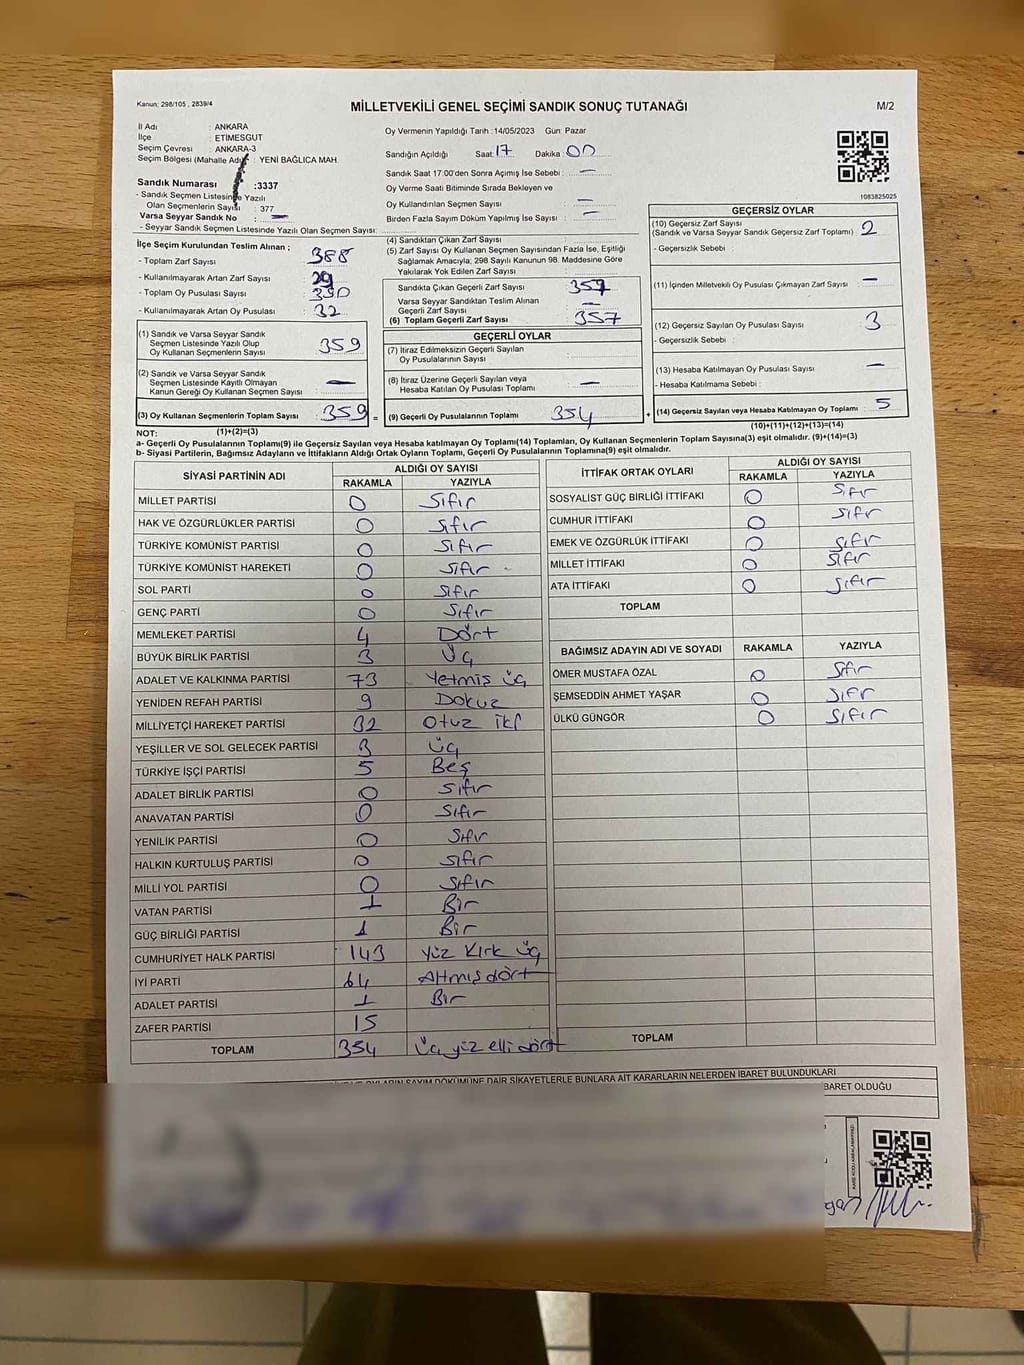 Kanun; 298/105 , 2839/4
MİLLETVEKİLİ GENEL SEÇİMİ SANDIK SONUÇ TUTANAĞI
M/2
İl Adı : ANKARA
İlçe : ETİMESGUT
Seçim Çevresi : ANKARA-3
Seçim Bölgesi (Mahalle Adı) : YENİ BAĞLICA MAH.
Sandık Numarası :3337
- Sandık Seçmen Listesinde Yazılı
Olan Seçmenlerin Sayısı : 377
Varsa Seyyar Sandık No : —
- Seyyar Sandık Seçmen Listesinde Yazılı Olan Seçmen Sayısı:
Oy Vermenin Yapıldığı Tarih :14/05/2023 Gün: Pazar
Sandığın Açıldığı Saat: 17 Dakika : 00
Sandık Saat 17:00'den Sonra Açımış İse Sebebi : —
Oy Verme Saati Bitiminde Sırada Bekleyen ve
Oy Kullandırılan Seçmen Sayısı : —
Birden Fazla Sayım Döküm Yapılmış İse Sayısı : —
1083825025
İlçe Seçim Kurulundan Teslim Alınan ;
- Toplam Zarf Sayısı : 388
- Kullanılmayarak Artan Zarf Sayısı : 29
- Toplam Oy Pusulası Sayısı :
- Kullanılmayarak Artan Oy Pusulası : 32
(1) Sandık ve Varsa Seyyar Sandık
Seçmen Listesinde Yazılı Olup
Oy Kullanan Seçmenlerin Sayısı : 359
(2) Sandık ve Varsa Seyyar Sandık
Seçmen Listesinde Kayıtlı Olmayan
Kanun Gereği Oy Kullanan Seçmen Sayısı : —
(3) Oy Kullanan Seçmenlerin Toplam Sayısı : 359 =
(1)+(2)=(3)
(4) Sandıktan Çıkan Zarf Sayısı :
(5) Zarf Sayısı Oy Kullanan Seçmen Sayısından Fazla İse, Eşitliği
Sağlamak Amacıyla; 298 Sayılı Kanunun 98. Maddesine Göre
Yakılarak Yok Edilen Zarf Sayısı :
Sandıkta Çıkan Geçerli Zarf Sayısı : 357
Varsa Seyyar Sandıktan Teslim Alınan
Geçerli Zarf Sayısı : —
(6) Toplam Geçerli Zarf Sayısı : 357
GEÇERLİ OYLAR
(7) İtiraz Edilmeksizin Geçerli Sayılan
Oy Pusulalarının Sayısı :
(8) İtiraz Üzerine Geçerli Sayılan veya
Hesaba Katılan Oy Pusulası Toplamı : —
(9) Geçerli Oy Pusulalarının Toplamı : 354 +
GEÇERSİZ OYLAR
(10) Geçersiz Zarf Sayısı
(Sandık ve Varsa Seyyar Sandık Geçersiz Zarf Toplamı) : 2
- Geçersizlik Sebebi :
(11) İçinden Milletvekili Oy Pusulası Çıkmayan Zarf Sayısı : —
(12) Geçersiz Sayılan Oy Pusulası Sayısı : 3
- Geçersizlik Sebebi :
(13) Hesaba Katılmayan Oy Pusulası Sayısı : —
- Hesaba Katılmama Sebebi :
(14) Geçersiz Sayılan veya Hesaba Katılmayan Oy Toplamı : 5
(10)+(11)+(12)+(13)=(14)
NOT:
a- Geçerli Oy Pusulalarının Toplamı(9) ile Geçersiz Sayılan veya Hesaba katılmayan Oy Toplamı(14) Toplamları, Oy Kullanan Seçmenlerin Toplam Sayısına(3) eşit olmalıdır. (9)+(14)=(3)
b- Siyasi Partilerin, Bağımsız Adayların ve İttifakların Aldığı Ortak Oyların Toplamı, Geçerli Oy Pusulalarının Toplamına(9) eşit olmalıdır.
SİYASİ PARTİNİN ADI ALDIĞI OY SAYISI
RAKAMLA YAZIYLA
MİLLET PARTİSİ 0 Sıfır
HAK VE ÖZGÜRLÜKLER PARTİSİ 0 Sıfır
TÜRKİYE KOMÜNİST PARTİSİ 0 Sıfır
TÜRKİYE KOMÜNİST HAREKETİ 0 Sıfır
SOL PARTİ 0 Sıfır
GENÇ PARTİ 0 Sıfır
MEMLEKET PARTİSİ 4 Dört
BÜYÜK BİRLİK PARTİSİ 3 Üç
ADALET VE KALKINMA PARTİSİ 73 Yetmiş üç
YENİDEN REFAH PARTİSİ 9 Dokuz
MİLLİYETÇİ HAREKET PARTİSİ 32 Otuz iki
YEŞİLLER VE SOL GELECEK PARTİSİ 3 üç
TÜRKİYE İŞÇİ PARTİSİ 5 Beş
ADALET BİRLİK PARTİSİ 0 Sıfır
ANAVATAN PARTİSİ 0 Sıfır
YENİLİK PARTİSİ 0 Sıfır
HALKIN KURTULUŞ PARTİSİ 0 Sıfır
MİLLİ YOL PARTİSİ 0 Sıfır
VATAN PARTİSİ 1 Bir
GÜÇ BİRLİĞİ PARTİSİ 1 Bir
CUMHURİYET HALK PARTİSİ 143 Yüz Kırk üç
İYİ PARTİ 64 Altmış dört
ADALET PARTİSİ 1 Bir
ZAFER PARTİSİ 15
TOPLAM 354 Üç yüz elli dört
İTTİFAK ORTAK OYLARI ALDIĞI OY SAYISI
RAKAMLA YAZIYLA
SOSYALİST GÜÇ BİRLİĞİ İTTİFAKI 0 Sıfır
CUMHUR İTTİFAKI 0 Sıfır
EMEK VE ÖZGÜRLÜK İTTİFAKI 0 Sıfır
MİLLET İTTİFAKI 0 Sıfır
ATA İTTİFAKI 0 Sıfır
TOPLAM
BAĞIMSIZ ADAYIN ADI VE SOYADI RAKAMLA YAZIYLA
ÖMER MUSTAFA ÖZAL 0 Sıfır
ŞEMSEDDİN AHMET YAŞAR 0 Sıfır
ÜLKÜ GÜNGÖR 0 Sıfır
TOPLAM
OYLARIN SAYIM DÖKÜMÜNE DAİR ŞİKAYETLERLE BUNLARA AİT KARARLARIN NELERDEN İBARET BULUNDUKLARI
İBARET OLDUĞU